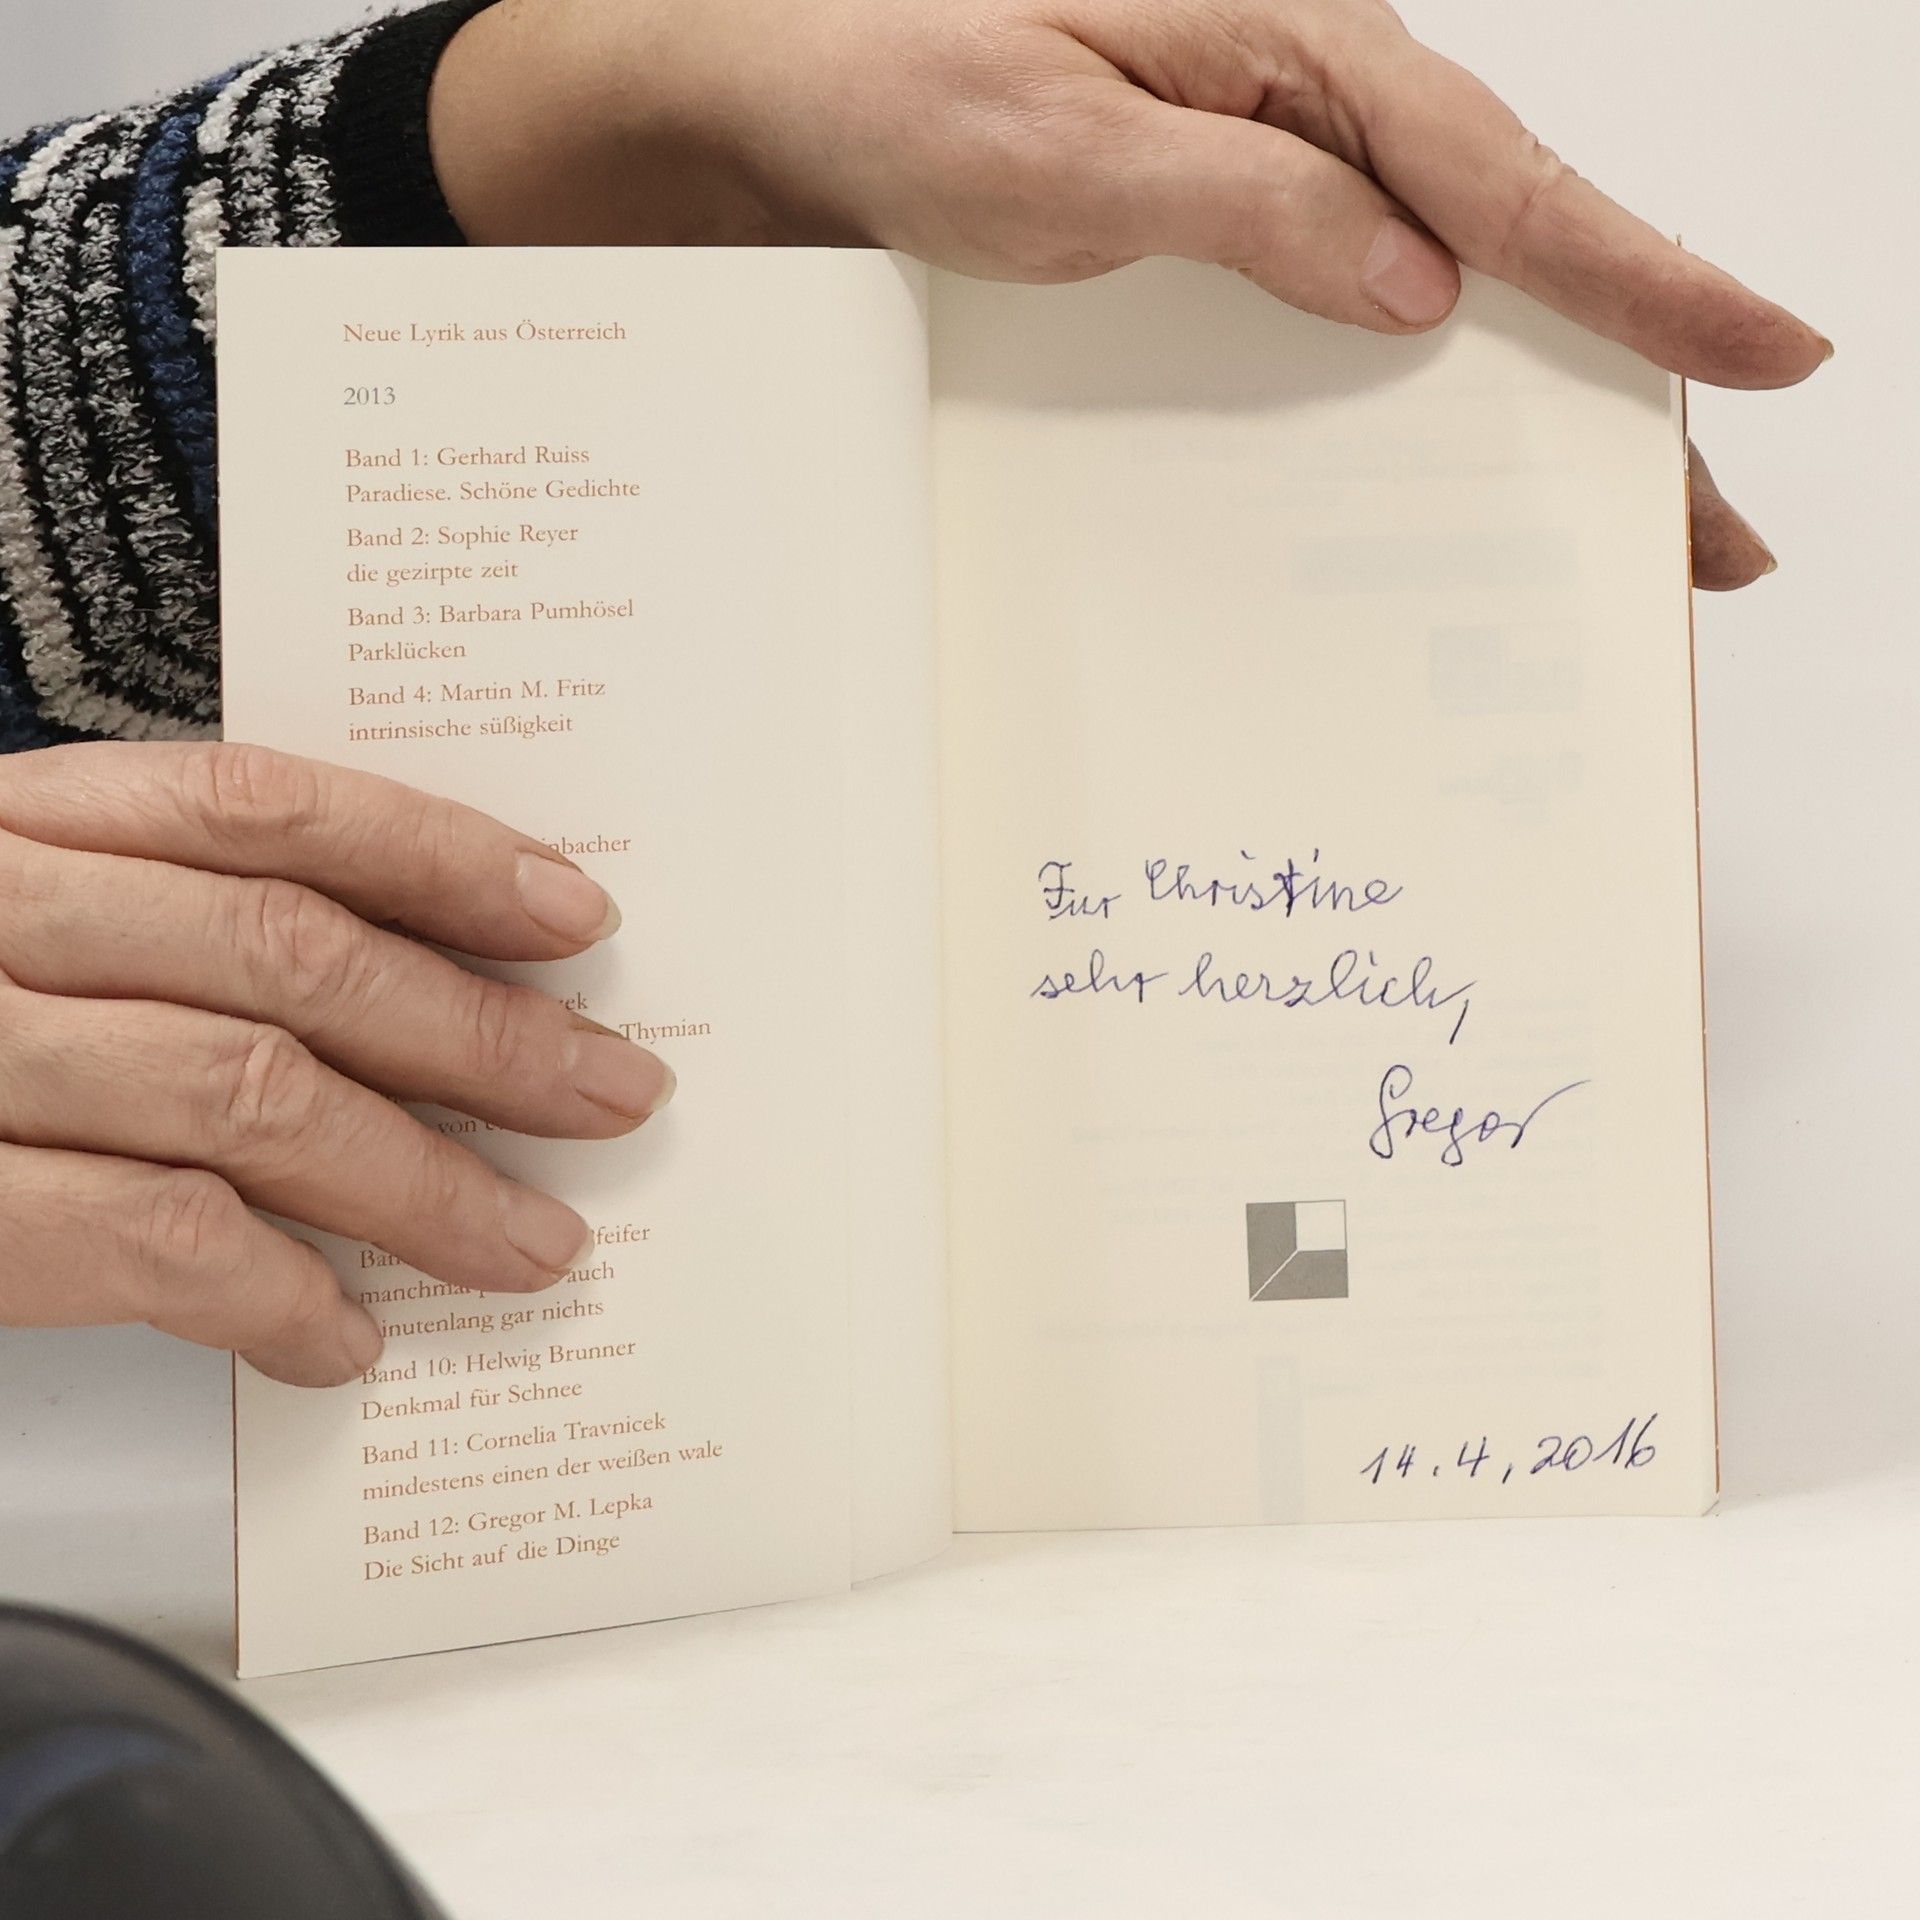 Neue Lyrik aus Österreich
2013
Band 1: Gerhard Ruiss
Paradiese. Schöne Gedichte
Band 2: Sophie Reyer
die gezirpte zeit
Band 3: Barbara Pumhösel
Parklücken
Band 4: Martin M. Fritz
intrinsische süßigkeit
Thymian
von
auch
gar nichts
Band 10: Helwig Brunner
Denkmal für Schnee
Band 11: Cornelia Travnicek
mindestens einen der weißen wale
Band 12: Gregor M. Lepka
Die Sicht auf die Dinge
Für Christine
sehr herzlich,
Gregor
14.4.2016